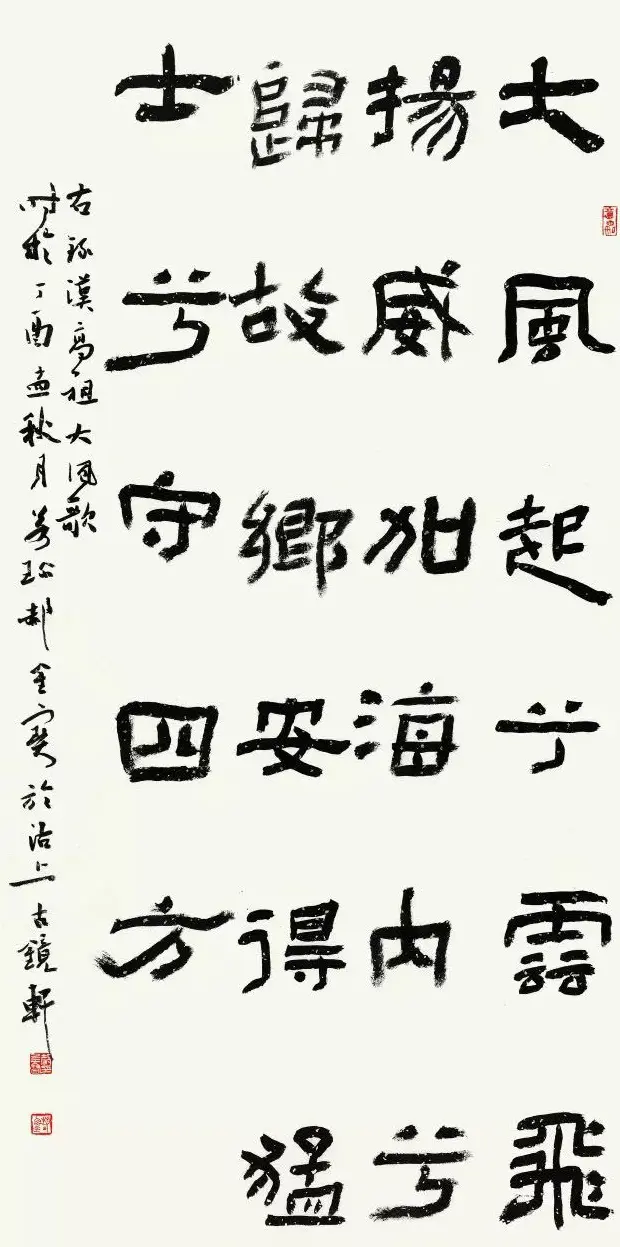 大風起兮雲飛
揚威加海内兮
歸故鄉安得猛
士兮守四方
右録漢高祖大風歌
時於丁酉孟秋月 郝金寶於沽上古鏡軒